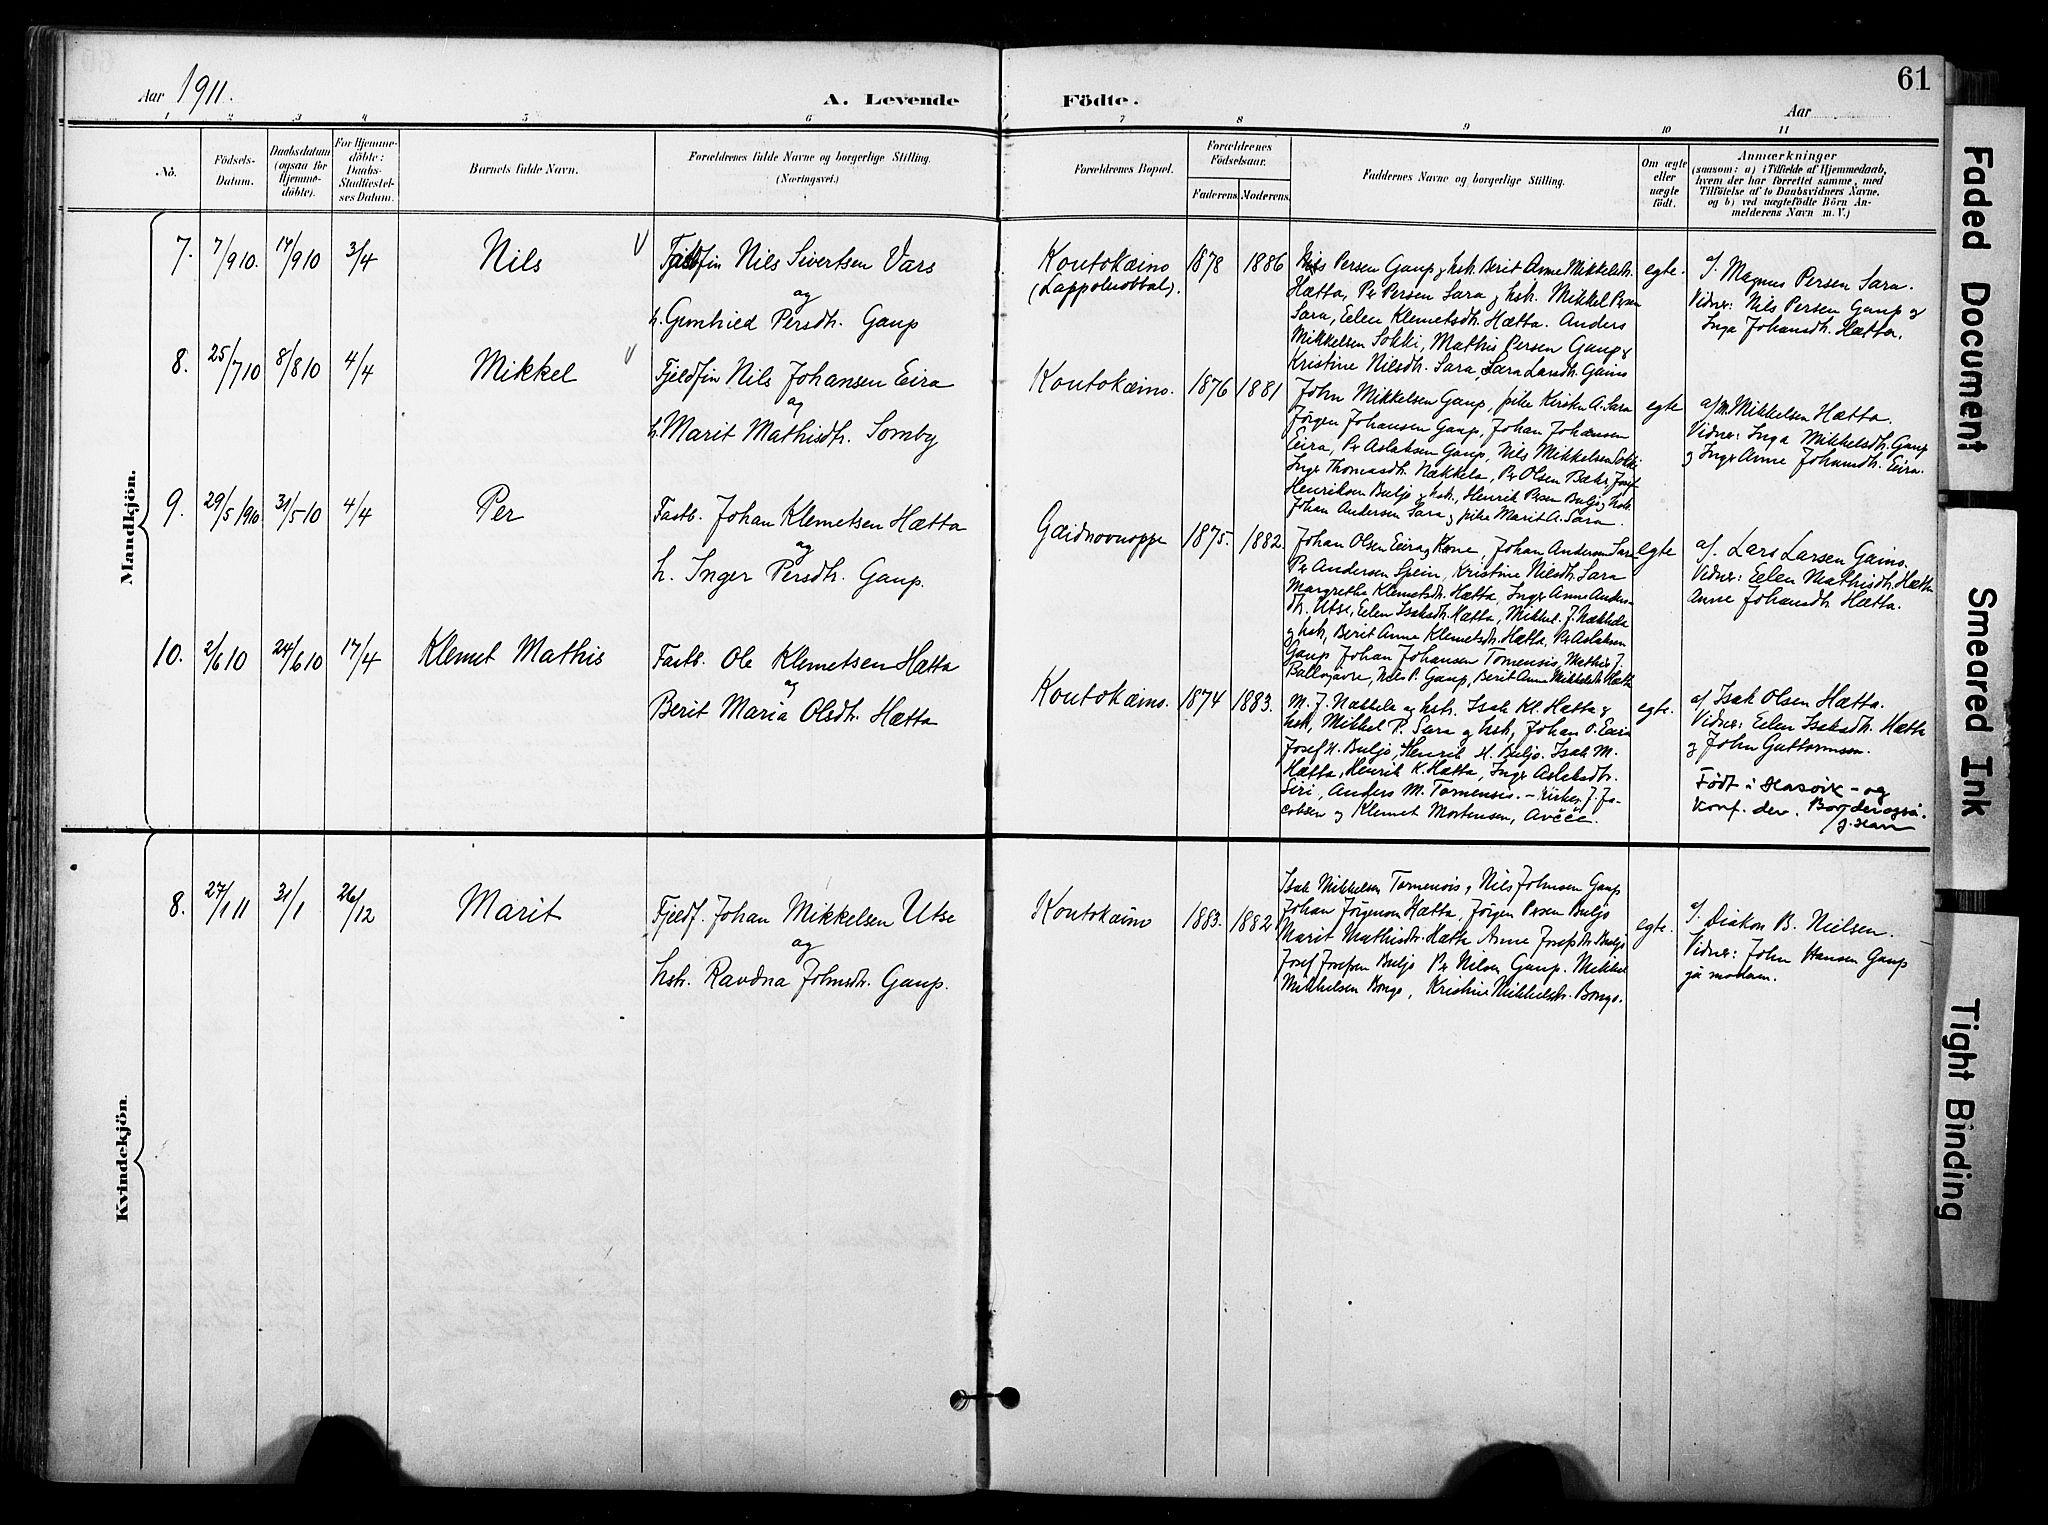 61
Aar 1911.
A. Levende Födte.
Aar
1 2 3 4 5 6 7 8 9 10 11
No.
Födsels-
Datum.
Daabsdatum
(ogsaa for
Hjemme-
döbte).
For Hjemme-
döbte:
Daabs-
Stadfæstel-
ses Datum.
Barnets fulde Navn.
Forældrenes fulde Navne og borgerlige Stilling.
(Næringsvei.)
Forældrenes Bopæl.
Forældrenes
Födselsaar.
Faderens Moderens
Faddernes Navne og borgerlige Stilling.
Om ægte
eller
uægte
födt.
Anmærkninger
(saasom: a) i Tilfælde af Hjemmedaab,
hvem der har forrettet samme, med
Tilföielse af to Daabsvidners Navne,
og b) ved uægtefödte Börn An-
melderens Navn m. V.)
Mandkjön.
7. 7/9 10. 17/9 10 3/4 Nils V
Fjeldfin Nils Sivertsen Vars
og
h. Gunhild Persdtr. Gaup
Koutokæino
(Lappoluobbal).
1878 1886
Nils Persen Gaup og hstr. Berit Anne Mikkelsdtr.
Hætta, Per Persen Sara og hstr. Mikkel Persen
Sara, Eelen Klemetsdtr. Hætta. Anders
Mikkelsen Sokki, Mathis Persen Gaup &
Kristine Nilsdtr. Sara, Sara Larsdtr. Gaino
egte.
af. Magnus Persen Sara.
Vidner: Nils Persen Gaup og
Inga Johansdtr. Hætta.
8. 25/7 10 8/8 10 4/4 Mikkel V
Fjeldfin Nils Johansen Eira
og
h. Marit Mathisdtr. Somby
Koutokæino.
1876 1881
John Mikkelsen Gaup, pike Kirsten A. Sara
Jørgen Johansen Gaup, Johan Johansen
Eira, Per Aslaksen Gaup, Nils Mikkelsen Sokki
Inger Thomasdtr. Nækkela, Per Olsen Bæhr, Josef
Henriksen Buljo og hstr., Henrik Persen Buljo og hstr.
Johan Andersen Sara og pike Marit A. Sara.
egte
af M. Mikkelsen Hætta.
Vidner: Inga Mikkelsdtr. Gaup
og Inger Anne Johansdtr. Eira.
9. 29/5 1910 31/5 10 4/4 Per
Fastb. Johan Klemetsen Hætta
og
h. Inger Persdtr. Gaup.
Gaidnovuoppe
1875. 1882.
Johan Olsen Eira og Kone, Johan Andersen Sara
Per Andersen Spein, Kristine Nilsdtr. Sara
Margrethe Klemetsdtr. Hætta, Inger Anne Anders-
dtr. Utse, Eelen Isaksdtr. Hætta, Mikkel J. Nækkela
og hstr, Berit Anne Klemetsdtr. Hætta, Per Aslaksen
Gaup Johan Johansen Tornensis, Mathis J.
Ballovare, Nils P. Gaup, Berit Anne Mikkelsdtr. Hætta
egte
af. Lars Larsen Gaino.
Vidner: Eelen Mathisdtr. Hætta
Anne Johansdtr. Hætta.
10. 2/6 10 24/6 10 17/4 Klemet Mathis
Fastb. Ole Klemetsen Hætta
og
Berit Maria Olsdtr. Hætta
Koutokæino.
1874 1883.
M. J. Nækkela og hstr. Isak Kl. Hætta og
hstr, Mikkel P. Sara og hstr, Johan O. Eira
Josef H. Buljo, Henrik H. Buljo. Isak M.
Hætta, Henrik K. Hætta, Inger Aslaksdtr.
Siri, Anders M. Tornensis. - Kirkes. J. Ja-
cobsen og Klemet Mortensen, Avčče.
egte.
af Isak Olsen Hætta.
Vidner: Eelen Isaksdtr. Hætta
og John Guttormsen.
Født i Hasvik - og
Konf. der. Bor der også.
Kvindekjön.
8. 27/1 11 31/1 26/12 Marit
Fjeldf. Johan Mikkelsen Utse
og
hstr. Ravdna Johnsdtr. Gaup.
Koutokæino
1883. 1882
Isak Mikkelsen Tornensis, Nils Johnsen Gaup
Johan Jörgensen Hætta, Jørgen Persen Buljo
Marit Mathisdtr. Hætta Anne Josefsdtr. Buljo
Josef Josefsen Buljo Per Nilsen Gaup. Mikkel
Mikkelsen Bongo, Kristine Mikkelsdtr. Bongo.
egte.
af. Diakon B. Nielsen.
Vidner: John Hansen Gaup
Faded Document
Smeared Ink
Tight Binding